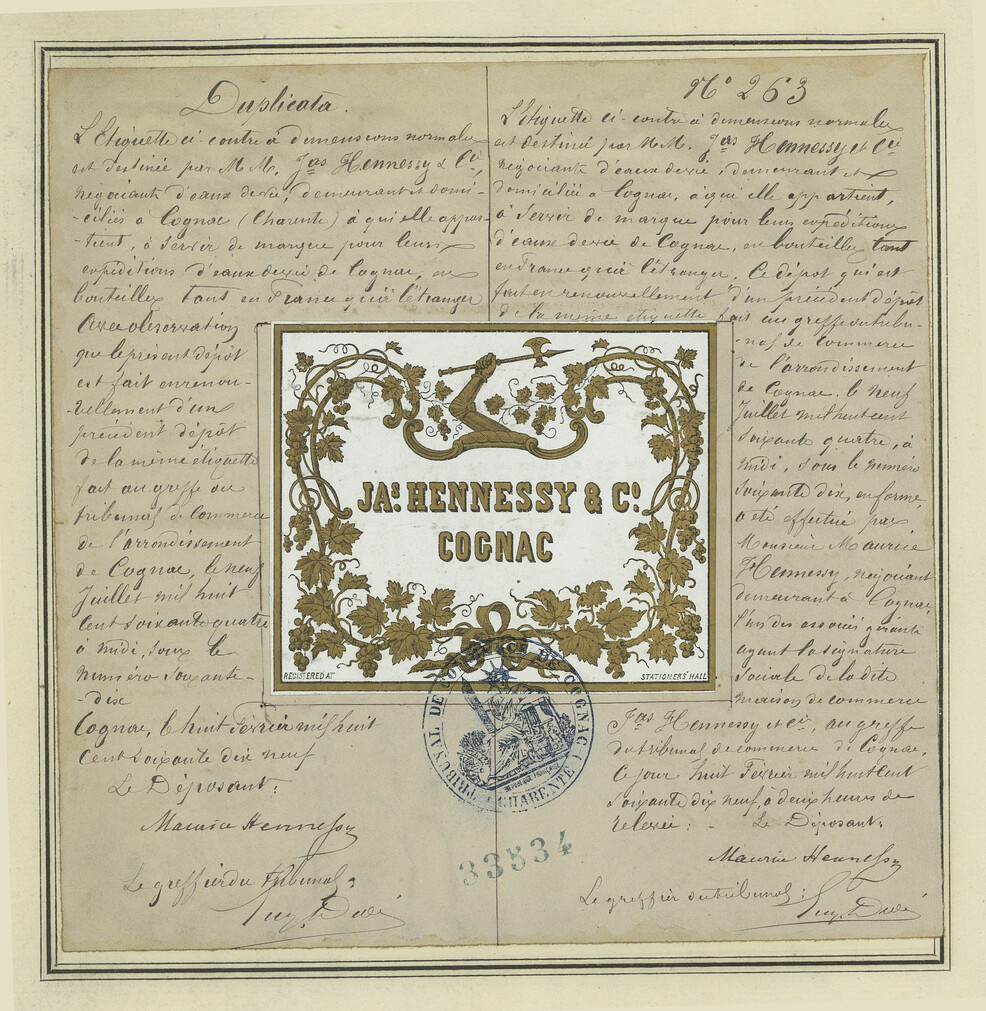 Duplicata.
L'Etiquette ci-contre à dimensions normales
est destinée par M.M. Jas Hennessy & Cie,
négociants d'eaux de vie, demeurant et domi-
-ciliés à Cognac (Charente) à qui elle appar-
-tient, à servir de marque pour leurs
expéditions d'eaux de vie de Cognac, en
bouteilles tant en France qu'à l'étranger
Avec observation
que le présent dépôt
est fait en renou-
-vellement d'un
précédent dépôt
de la même étiquette
fait au greffe du
tribunal de Commerce
de l'arrondissement
de Cognac, le neuf
Juillet mil huit
Cent soixante quatre
à midi, sous le
numéro soixante-
-dix
Cognac, le huit Février mil huit
Cent soixante dix neuf
Le Déposant:
Maurice Hennessy
Le greffier du Tribunal:
No 263
L'étiquette ci-contre à dimensions normales
est destinée par M.M. Jas Hennessy et Cie
négociants d'eaux de vie, demeurant et
domiciliés à Cognac, à qui elle appartient,
à servir de marque pour leurs expéditions
d'eaux de vie de Cognac, en bouteilles tant
en France qu'à l'étranger. Ce dépôt qui est
fait en renouvellement d'un précédent dépôt
de la même étiquette fait au greffe du tribu-
-nal de Commerce
de l'arrondissement
de Cognac, le neuf
Juillet mil huit cent
soixante quatre, à
midi, sous le numéro
soixante dix, en forme
a été effectué par
Monsieur Maurice
Hennessy, négociant
demeurant à Cognac,
l'un des associés gérants
ayant la signature
sociale de la dite
maison de commerce
Jas Hennessy et Cie, au greffe
du tribunal de commerce de Cognac,
ce jour huit Février mil huit Cent
soixante dix neuf, à deux heures de
relevée: - Le Déposant:
Maurice Hennessy
Le greffier du tribunal:
JAS. HENNESSY & CO.
COGNAC
REGISTERED AT
STATIONERS' HALL
TRIBUNAL DE COMMERCE DE COGNAC
CHARENTE
33534